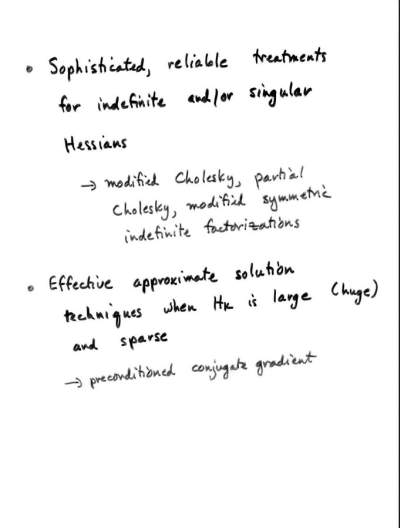 • Sophisticated, reliable treatments
for indefinite and/or singular
Hessians
→ modified Cholesky, partial
Cholesky, modified symmetric
indefinite factorizations
• Effective approximate solution
techniques when Hk is large (huge)
and sparse
→ preconditioned conjugate gradient